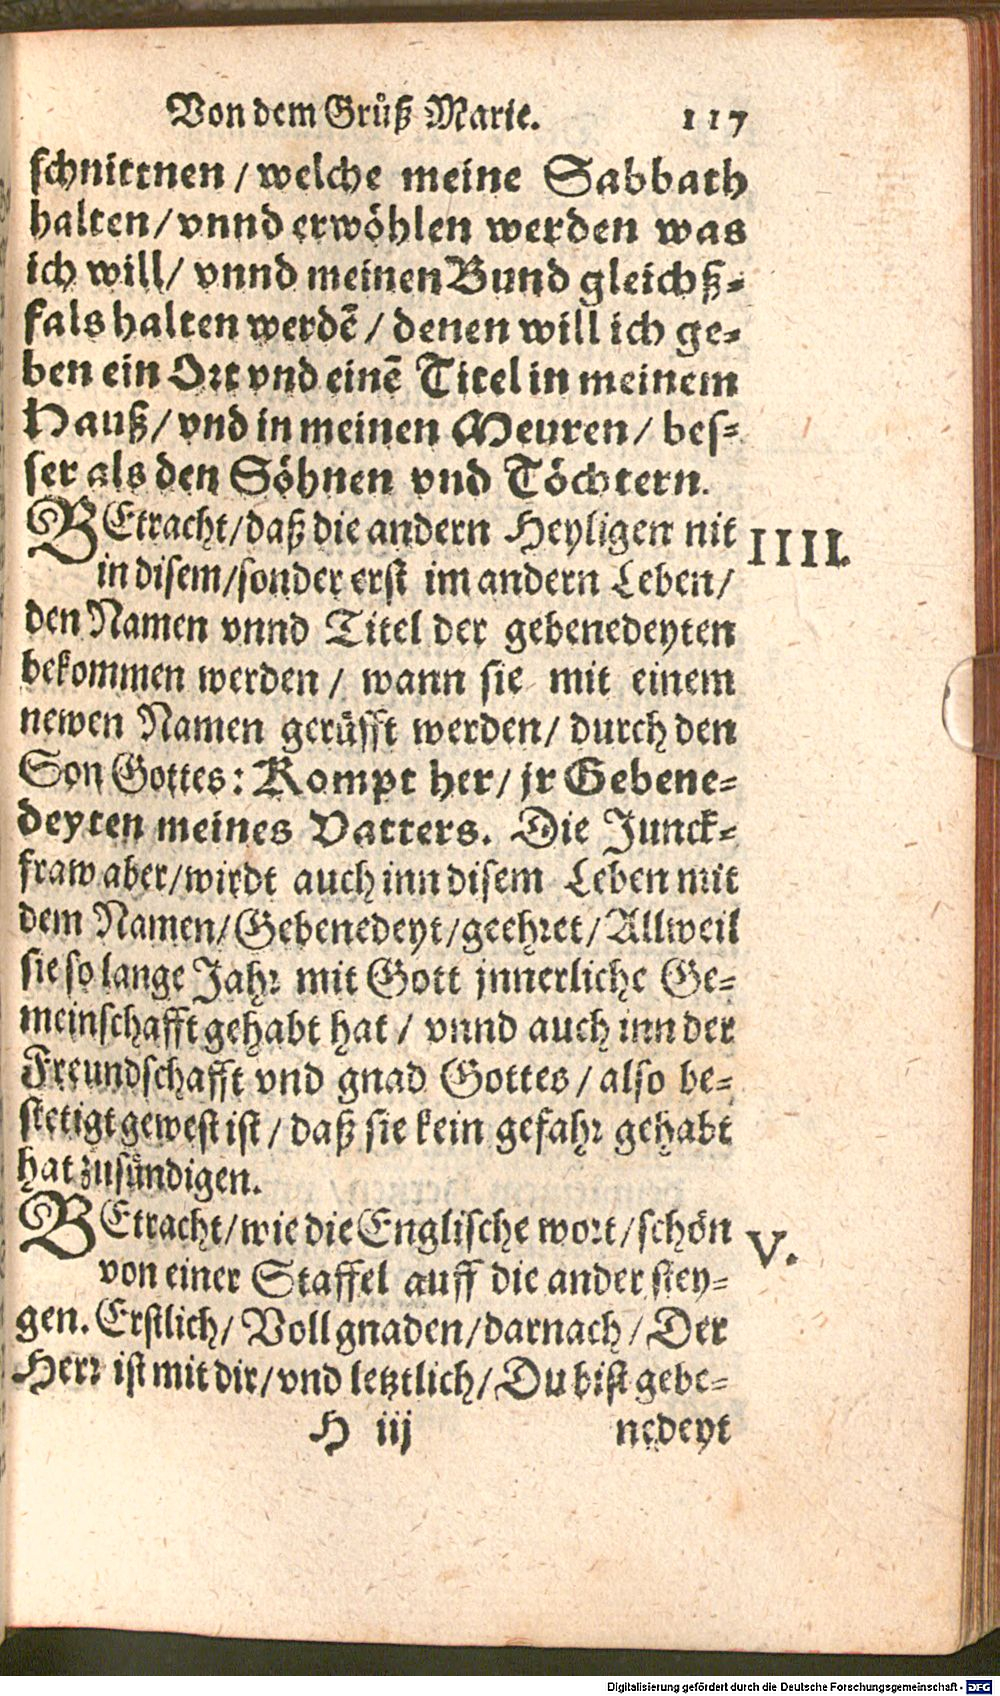 Von dem Grůß Marie. 117
schnittnen / welche meine Sabbath
halten / vnnd erwöhlen werden was
ich will / vnnd meinen Bund gleichß-
fals halten werdē / denen will ich ge-
ben ein Ort vnd einē Titel in meinem
Hauß / vnd in meinen Meuren / bes-
ser als den Söhnen vnd Töchtern.
BEtracht / daß die andern Heyligen nit IIII.
in disem / sonder erst im andern Leben /
den Namen vnnd Titel der gebenedeyten
bekommen werden / wann sie mit einem
newen Namen gerüfft werden / durch den
Son Gottes: Kompt her / jr Gebene-
deyten meines Vatters. Die Junck-
fraw aber / wirdt auch inn disem Leben mit
dem Namen / Gebenedeyt / geehret / Allweil
sie so lange Jahr mit Gott jnnerliche Ge-
meinschafft gehabt hat / vnnd auch inn der
Freundschafft vnd gnad Gottes / also be-
stetigt gewest ist / daß sie kein gefahr gehabt
hat zusündigen.
BEtracht / wie die Englische wort / schön V.
von einer Staffel auff die ander stey-
gen. Erstlich / Voll gnaden / darnach / Der
Herr ist mit dir / vnd letztlich / Du bist gebe-
H iij nedeyt
Digitalisierung gefördert durch die Deutsche Forschungsgemeinschaft - DFG